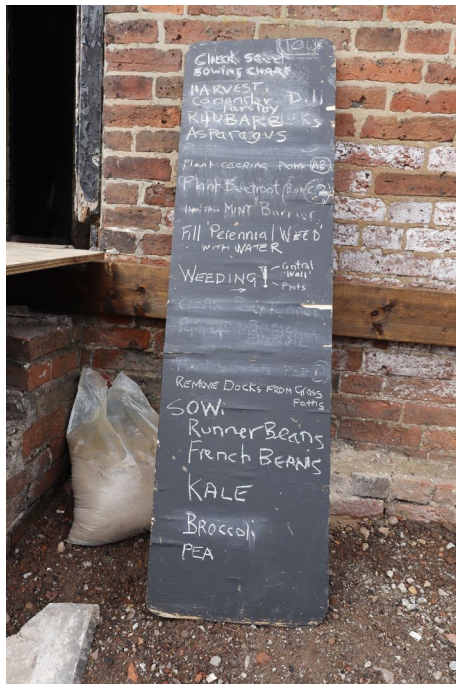 CHECK SEED
SOWING CHART
HARVEST.
Coriander Dill
Parsley
RHUBARB
Asparagus
PLANT CELERIAC Plots
Plant Beetroot
INSTALL MINT Barrier
Fill 'Perennial WEED'
WITH WATER
WEEDING! Central
'Wall'
Plots
REMOVE Docks FROM Grass
Paths
SOW.
Runner Beans
French BEANS
KALE
BROCCOLi
PEA